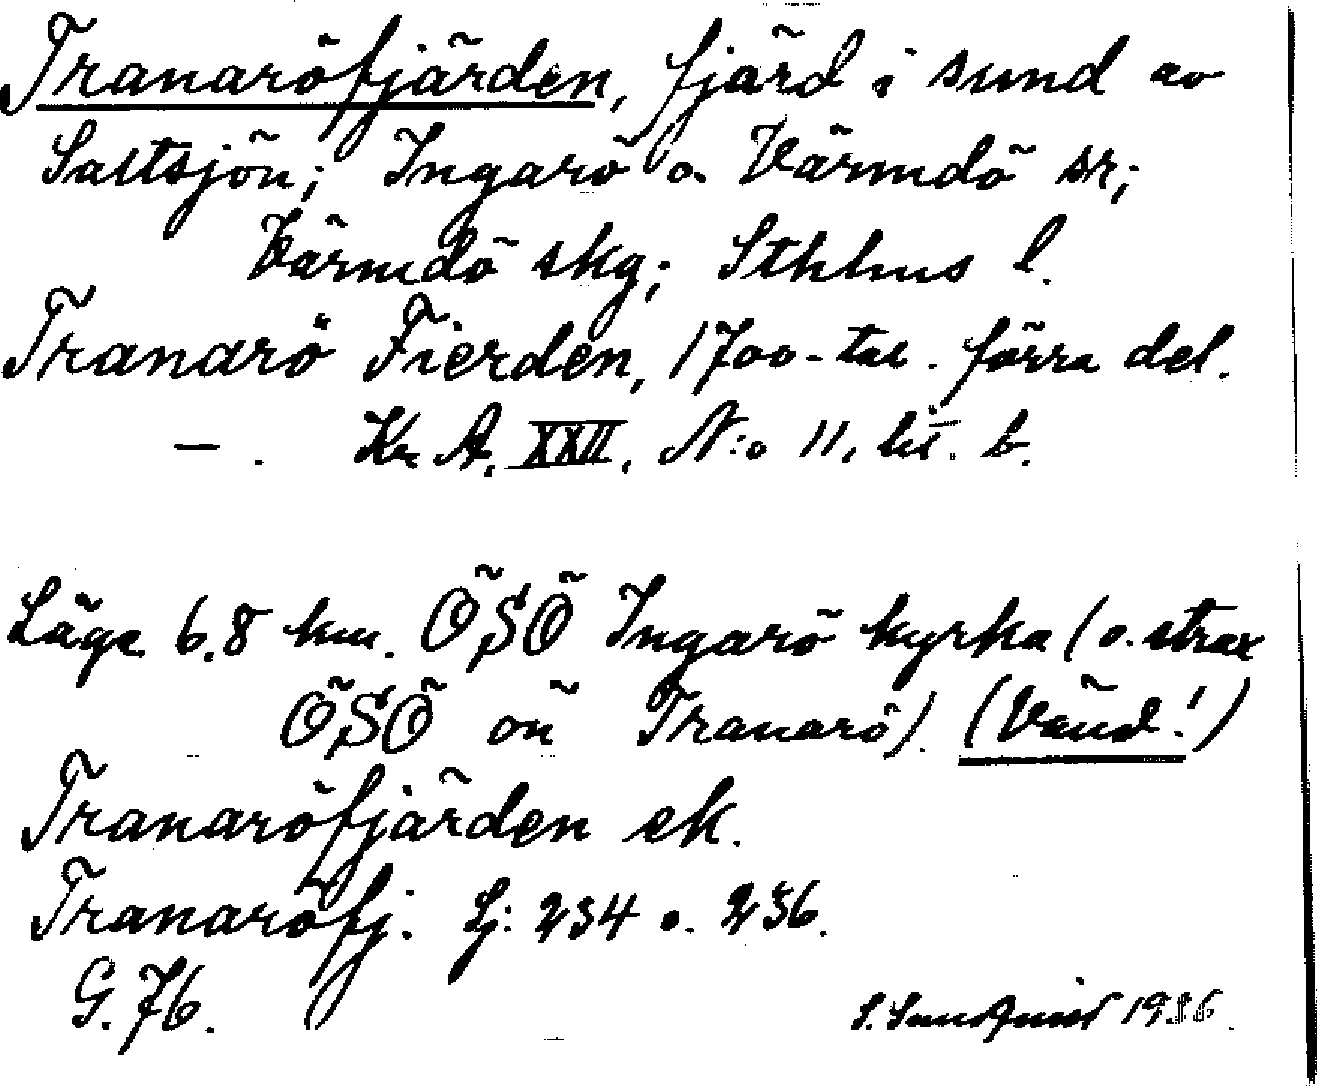 Tranaröfjärden, fjärd i sund av
Saltsjön; Ingarö o. Värmdö sr;
Värmdö skg; Sthlms l.
Tranarö Fierden, 1700-tal. förra del.
— . Kr A. XXII. N:o 11, lit. b.
Läge 6.8 km. ÖSÖ Ingarö kyrka (o. strax
ÖSÖ on Tranarö). (Vänd!)
Tranaröfjärden ek.
Tranaröfj. Sj: 234 o. 236.
G. 76.
S. Sundquist 1936.